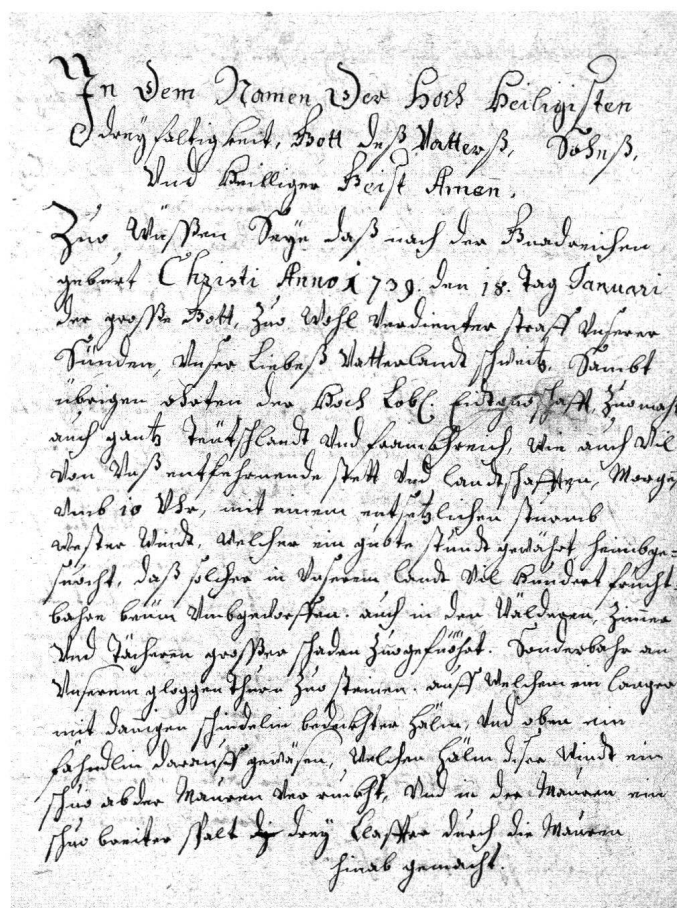 In Dem Namen Der Hoch Heiligisten
dreyfaltigkeit, Gott deß Vatterß, Sohnß,
Vnd Heilliger Geist Amen.
Zuo Wüssen Seye daß nach der Gnadreichen
geburt Christi Anno 1739. den 18. Tag Januari
der grosse Gott, Zuo Wohl Verdienter straff Vnserer
Sünden, Vnser Liebeß Vatterlandt schweitz, Sambt
übrigen ohrten der Hoch Lobl. Eidtgnoschafft,
auch gantz Teütschlandt Vnd frankhreich, wie auch Vil
von Vnß entfehrnende stett Vnd landtschafften, Morgens
Vmb 10 Vhr, mit einem entsetzlichen sturmb
wester Windt, welcher ein guote stundt gewährt heimbge=
suocht, daß solcher in Vnserem landt Vil Hundert frucht
bahre bäum Vmbgeworffen. auch in den Wälderen, Zimmer
Vnd Tächeren grosser schaden Zuogefüögt. Sonderbahr an
Vnserem gloggen Thurn Zuo steinen. auff Welchem ein langer
mit danigen schindelin bedeckhter Hälm, Vnd oben ein
fähndlin darauff gewäsen, Welchen Hälm diser Windt ein
schuo ab der Mauren Verruckht, Vnd in der Mauren ein
schuo breiter spalt drey Claffter durch die Mauren
hinab gemacht.